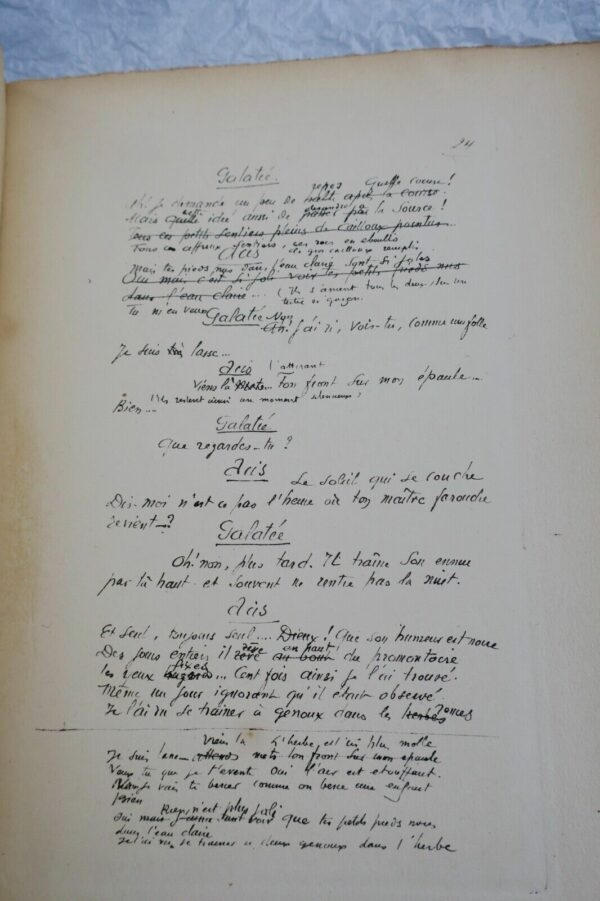 24
Galatée.
repos Quelle course!
Ah! je demande un peu de halte après la course.
Mais quelle idée aussi de plus la source!
Tous ces petits sentiers pleins de cailloux pointus
Tous ces affreux sentiers, ces rocs en éboulis
Acis de gros cailloux remplis
Mais tes pieds nus dans l'eau claire sont si jolis
Oui mais c'est si joli voir tes petits pieds nus
dans l'eau claire... (Ils s'aiment tous les deux sur un
Tu m'en veux
Galatée Non
Ah. j'ai ri, vois-tu, comme une folle
Je suis très lasse...
Acis l'attirant
Viens là Ton front sur mon épaule...
Bien... (Ils restent ainsi un moment silencieux)
Galatée
Que regardes-tu?
Acis
Le soleil qui se couche
Dis-moi n'est-ce pas l'heure où ton maître farouche
revient-?
Galatée
Oh! non, plus tard. Il traîne son ennui
par là haut et souvent ne rentre pas la nuit.
Acis
Et seul, toujours seul.... Dieux! Que son humeur est noire
rêve en haut
Des jours entiers il rêve au bout du promontoire
fixes
les yeux hagards... Cent fois ainsi je l'ai trouvé.
Même un jour ignorant qu'il était observé
Je l'ai vu se traîner à genoux dans les herbes ronces
Viens là L'herbe est ici plus molle
Je suis lasse attends mets ton front sur mon épaule
Veux tu que je t'évente oui l'air est étouffant.
Non je vais te bercer comme on berce une enfant
Bien
Rien n'est plus joli
Oui mais j'aime tant voir que tes petits pieds nus
dans l'eau claire
Je l'ai vu se traîner à deux genoux dans l'herbe